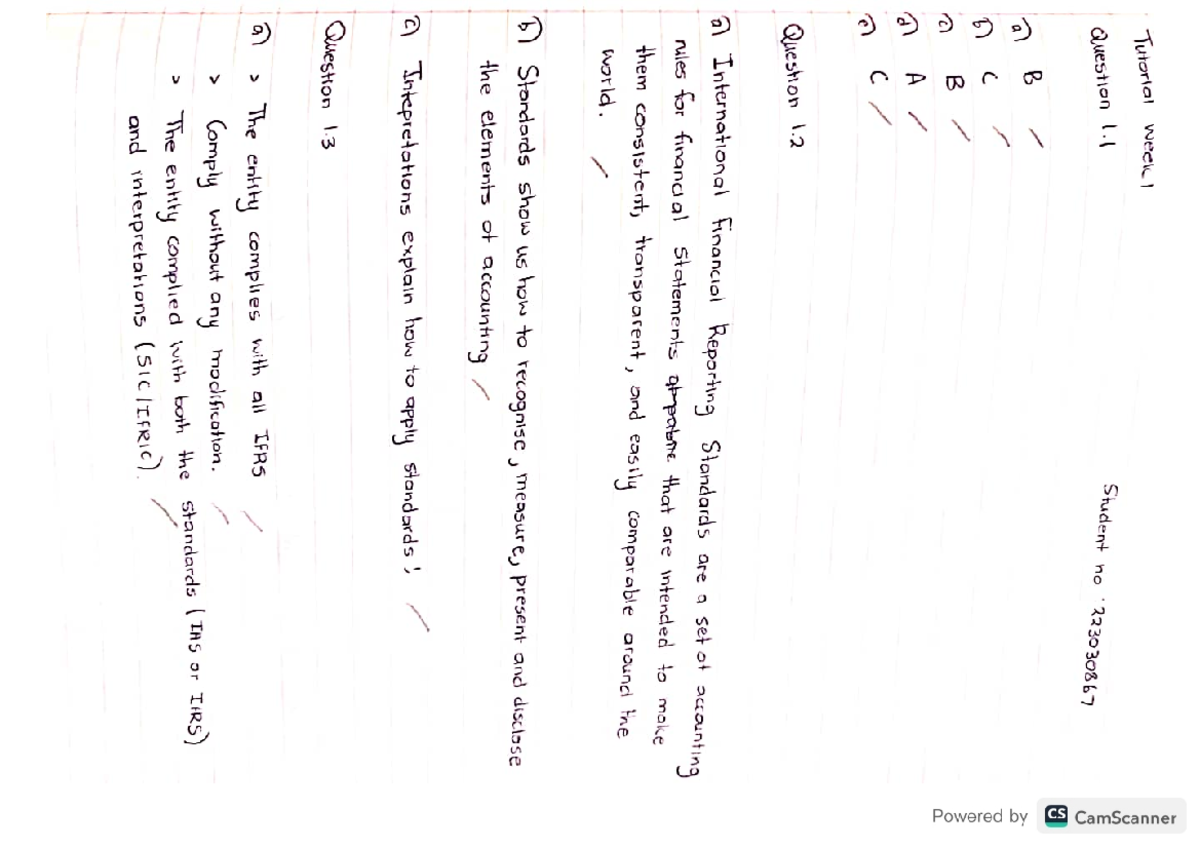 Tutorial week 1
Student no : 223030867
Question 1.1
a) B
b) C
c) B
d) A
e) C
Question 1.2
a) International Financial Reporting Standards are a set of accounting
rules for financial statements that are intended to make
them consistent, transparent, and easily comparable around the
world.
b) Standards show us how to recognise, measure, present and disclose
the elements of accounting
c) Intepretations explain how to apply standards;
Question 1.3
a) > The entity complies with all IFRS
> Comply without any modification.
> The entity complied with both the standards (IAS or IFRS)
and interpretations (SIC/IFRIC).
Powered by CS CamScanner